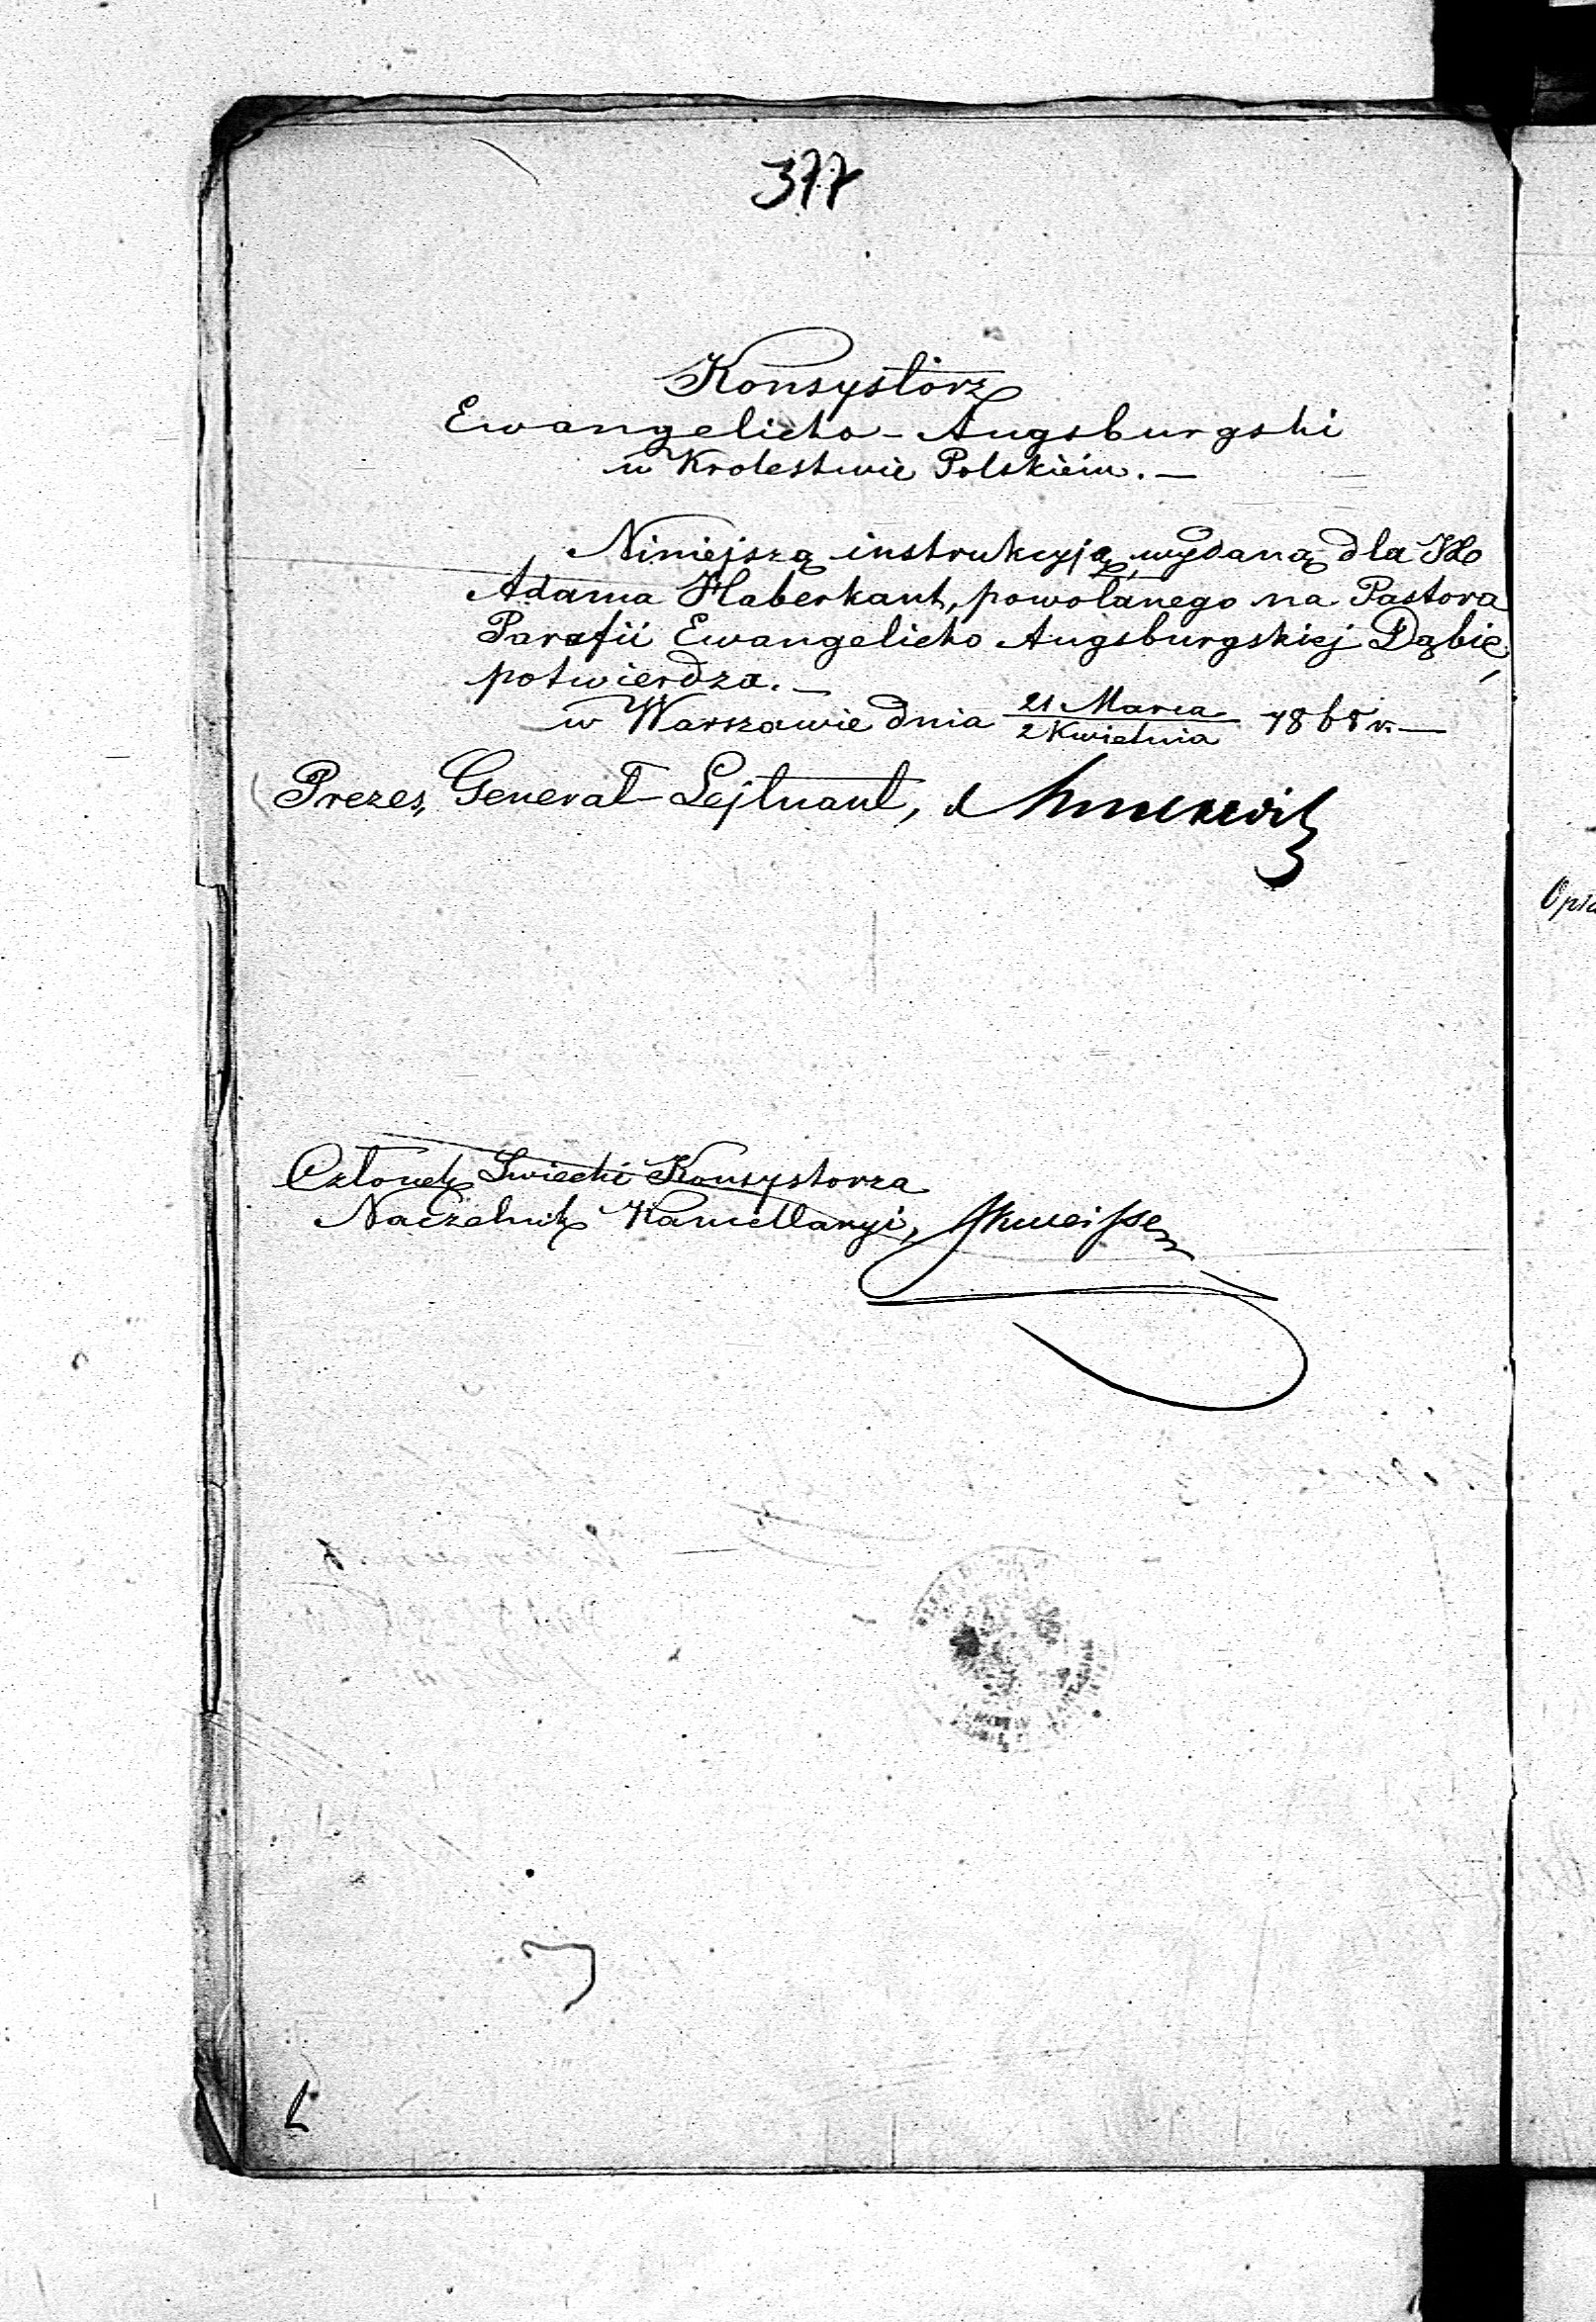 377
Konsystorz
Ewangelicko-Augsburgski
w Krolestwie Polskiém. —
Niniejszą instrukcyją, wydaną dla
Adama Haberkant, powołanego na Pastora
Parafii Ewangelicko Augsburgskiej Dąbie,
potwierdza. —
w Warszawie dnia 21 Marca / 2 Kwietnia 1868 r. —
Prezes, Generał-Lejtnant,
Członek Swiecki Konsystorza
Naczelnik Kancellaryi,